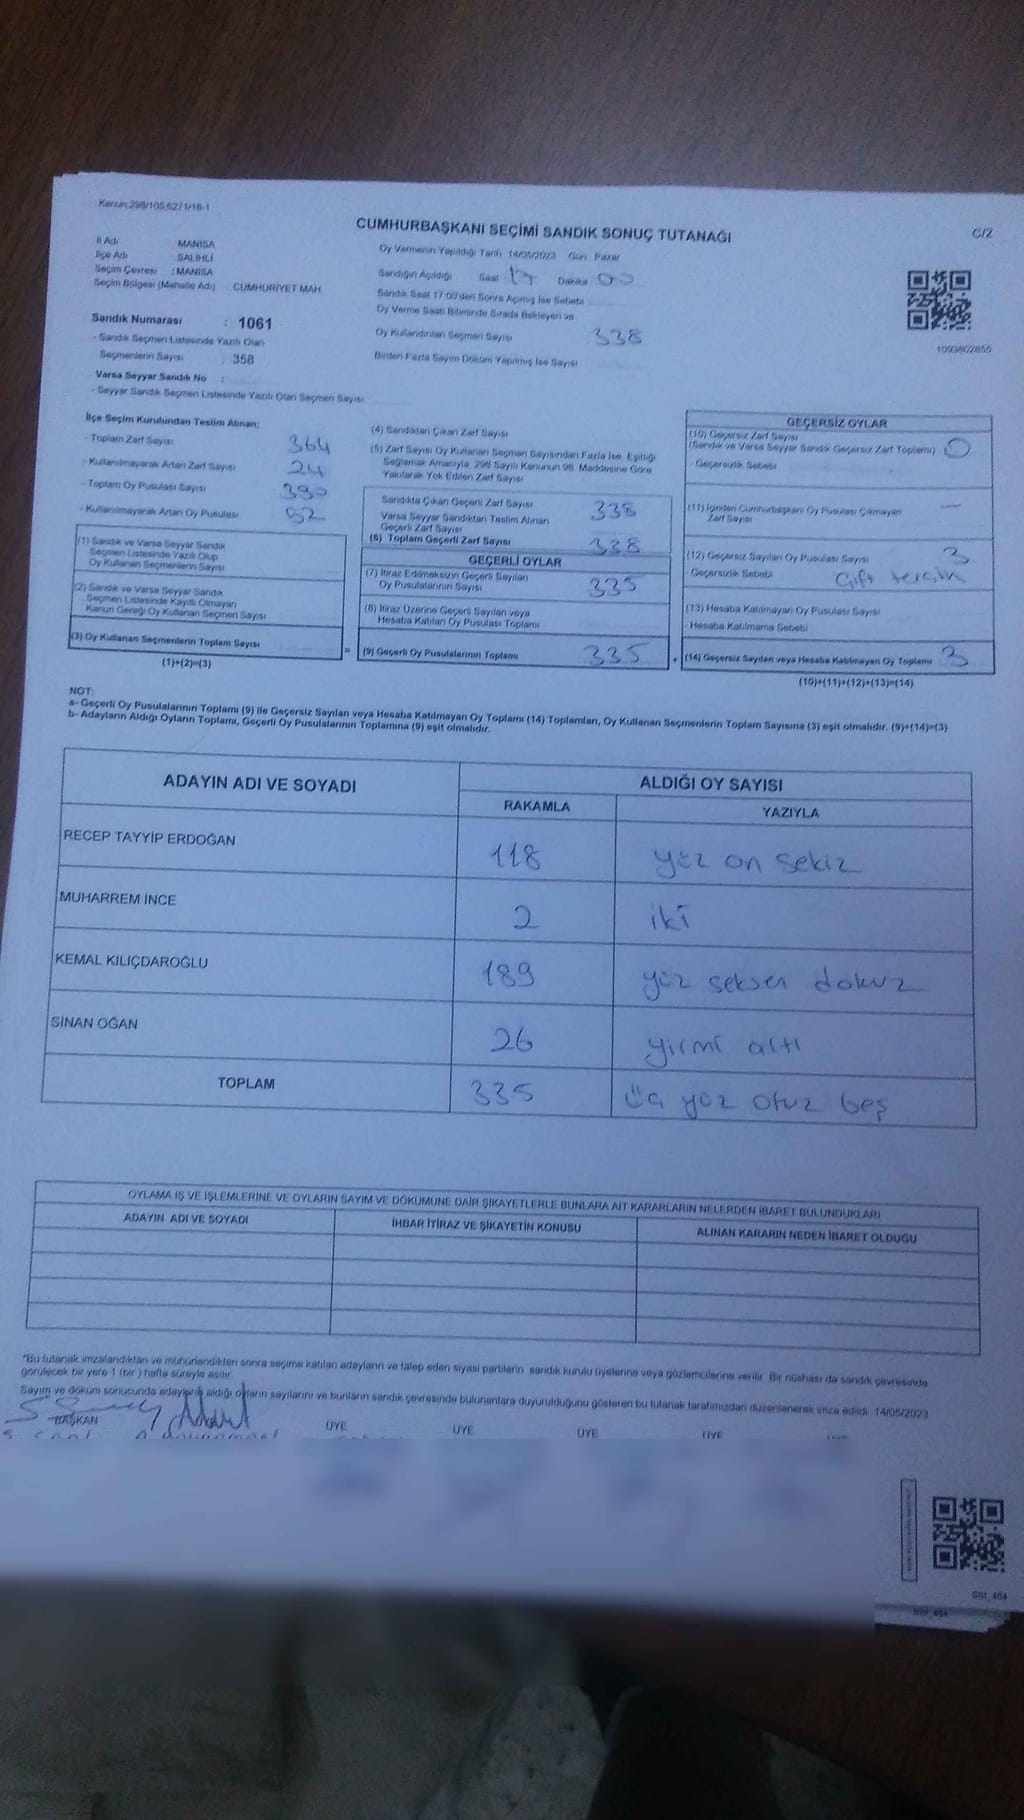 Kanun:298/105,6271/16-1
CUMHURBAŞKANI SEÇİMİ SANDIK SONUÇ TUTANAĞI
C/2
İl Adı : MANİSA
İlçe Adı : SALİHLİ
Seçim Çevresi : MANİSA
Seçim Bölgesi (Mahalle Adı) CUMHURİYET MAH
Sandık Numarası : 1061
- Sandık Seçmen Listesinde Yazılı Olan
Seçmenlerin Sayısı 358
Varsa Seyyar Sandık No :
- Seyyar Sandık Seçmen Listesinde Yazılı Olan Seçmen Sayısı
Oy Vermenin Yapıldığı Tarih 14/05/2023 Gün Pazar
Sandığın Açıldığı Saat 17 Dakika 00
Sandık Saat 17:00'den Sonra Açılmış İse Sebebi
Oy Verme Saati Bitiminde Sırada Bekleyen ve
Oy Kullandırılan Seçmen Sayısı 338
Birden Fazla Sayım Döküm Yapılmış İse Sayısı
1093802855
İlçe Seçim Kurulundan Teslim Alınan;
- Toplam Zarf Sayısı 364
- Kullanılmayarak Artan Zarf Sayısı 24
- Toplam Oy Pusulası Sayısı 390
- Kullanılmayarak Artan Oy Pusulası 52
(1) Sandık ve Varsa Seyyar Sandık
Seçmen Listesinde Yazılı Olup
Oy Kullanan Seçmenlerin Sayısı
(2) Sandık ve Varsa Seyyar Sandık
Seçmen Listesinde Kayıtlı Olmayan
Kanun Gereği Oy Kullanan Seçmen Sayısı
(3) Oy Kullanan Seçmenlerin Toplam Sayısı
(1)+(2)=(3)
=
(4) Sandıktan Çıkan Zarf Sayısı
(5) Zarf Sayısı Oy Kullanan Seçmen Sayısından Fazla İse, Eşitliği
Sağlamak Amacıyla, 298 Sayılı Kanunun 98. Maddesine Göre
Yakılarak Yok Edilen Zarf Sayısı
Sandıkta Çıkan Geçerli Zarf Sayısı 338
Varsa Seyyar Sandıktan Teslim Alınan
Geçerli Zarf Sayısı
(6) Toplam Geçerli Zarf Sayısı 338
GEÇERLİ OYLAR
(7) İtiraz Edilmeksizin Geçerli Sayılan
Oy Pusulalarının Sayısı 335
(8) İtiraz Üzerine Geçerli Sayılan veya
Hesaba Katılan Oy Pusulası Toplamı
(9) Geçerli Oy Pusulalarının Toplamı 335
+
GEÇERSİZ OYLAR
(10) Geçersiz Zarf Sayısı
(Sandık ve Varsa Seyyar Sandık Geçersiz Zarf Toplamı) 0
- Geçersizlik Sebebi
(11) İçinden Cumhurbaşkanı Oy Pusulası Çıkmayan
Zarf Sayısı —
(12) Geçersiz Sayılan Oy Pusulası Sayısı 3
Geçersizlik Sebebi Çift tercih
(13) Hesaba Katılmayan Oy Pusulası Sayısı
- Hesaba Katılmama Sebebi
(14) Geçersiz Sayılan veya Hesaba Katılmayan Oy Toplamı 3
(10)+(11)+(12)+(13)=(14)
NOT:
a- Geçerli Oy Pusulalarının Toplamı (9) ile Geçersiz Sayılan veya Hesaba Katılmayan Oy Toplamı (14) Toplamları, Oy Kullanan Seçmenlerin Toplam Sayısına (3) eşit olmalıdır. (9)+(14)=(3)
b- Adayların Aldığı Oyların Toplamı, Geçerli Oy Pusulalarının Toplamına (9) eşit olmalıdır.
ADAYIN ADI VE SOYADI
ALDIĞI OY SAYISI
RAKAMLA YAZIYLA
RECEP TAYYİP ERDOĞAN 118 yüz on sekiz
MUHARREM İNCE 2 iki
KEMAL KILIÇDAROĞLU 189 yüz seksen dokuz
SİNAN OĞAN 26 yirmi altı
TOPLAM 335 üç yüz otuz beş
OYLAMA İŞ VE İŞLEMLERİNE VE OYLARIN SAYIM VE DÖKÜMÜNE DAİR ŞİKAYETLERLE BUNLARA AİT KARARLARIN NELERDEN İBARET BULUNDUKLARI
ADAYIN ADI VE SOYADI İHBAR İTİRAZ VE ŞİKAYETİN KONUSU ALINAN KARARIN NEDEN İBARET OLDUĞU
*Bu tutanak imzalandıktan ve mühürlendikten sonra seçime katılan adayların ve talep eden siyasi partilerin sandık kurulu üyelerine veya gözlemcilerine verilir. Bir nüshası da sandık çevresinde
görülecek bir yere 1 (bir) hafta süreyle asılır.
Sayım ve döküm sonucunda adayların aldığı oyların sayılarını ve bunların sandık çevresinde bulunanlara duyurulduğunu gösteren bu tutanak tarafımızdan düzenlenerek imza edildi. 14/05/2023
BAŞKAN ÜYE ÜYE ÜYE ÜYE
SSI_404